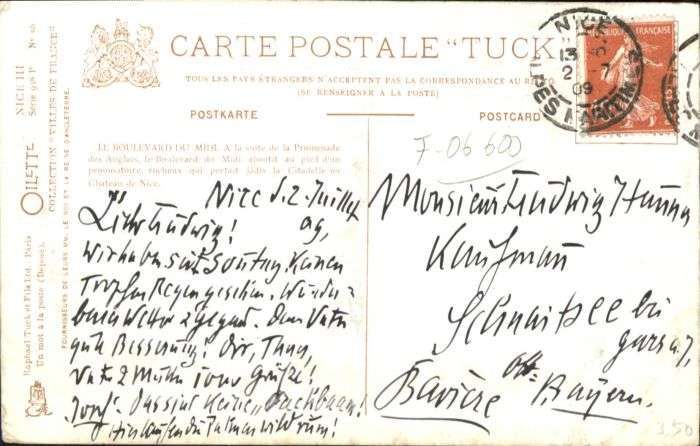 CARTE POSTALE "TUCK"
TOUS LES PAYS ETRANGERS N'ACCEPTENT PAS LA CORRESPONDANCE AU RECTO.
(SE RENSEIGNER A LA POSTE)
POSTKARTE
POSTCARD
LE BOULEVARD DU MIDI. A la suite de la Promenade
des Anglais, le Boulevard du Midi aboutit au pied d'un
promontoire, rocheux qui portait jadis la Citadelle ou
Château de Nice.
NICE III
Série 998 P
OILETTE
COLLECTION "VILLES DE FRANCE"
Raphael Tuck et Fils Ltd. Paris
Un mot à la poste (Deposé).
FOURNISSEURS DE LEURS MM. LE ROI ET LA REINE D'ANGLETERRE.
FRANÇAISE
NICE
13
2 - 7
09
ALPES MARITIMES
7-06 600
Nice d. 2. Juillet
09,
Lieber Ludwig!
Wir haben seit Sonntag keinen
Tropfen Regen gesehen. Wunder-
bares Wetter. Dem Vater
gute Besserung! Dir,
Vater & Mutter Grüße!
Josef. Das sind keine "Dachbaum!
Hier laufen die Palmen wild rum!
Monsieur Ludwig
Kaufmann
Schnaitsee bei
Gars a/J.
Bavière
Bayern.
3.50